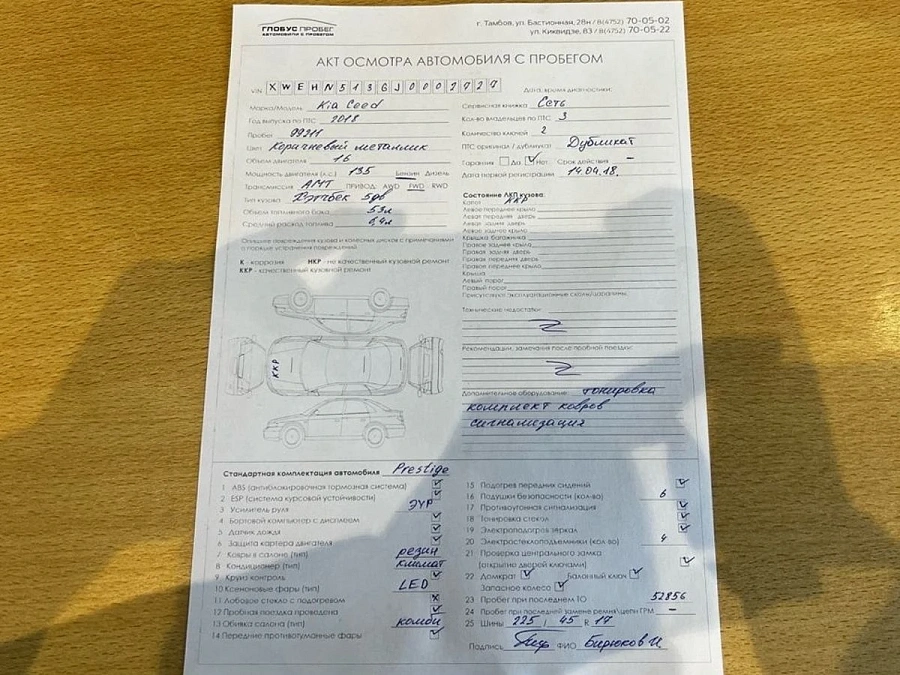 ГЛОБУС ПРОБЕГ
АВТОМОБИЛИ С ПРОБЕГОМ
г. Тамбов, ул. Бастионная, 28н / 8(4752) 70-05-02
ул. Киквидзе, 83 / 8(4752) 70-05-22
АКТ ОСМОТРА АВТОМОБИЛЯ С ПРОБЕГОМ
VIN XWEHN513GJ0002727
Марка/Модель Kia Ceed
Год выпуска по ПТС 2018
Пробег 99211
Цвет Коричневый металлик
Объем двигателя 16
Мощность двигателя (л.с.) 135 Бензин Дизель
Трансмиссия АМТ ПРИВОД: AWD FWD RWD
Тип кузова Хэтчбек 5дв
Объем топливного бака 53л
Средний расход топлива 6,4л
Дата, время диагностики:
Сервисная книжка Есть
Кол-во владельцев по ПТС 3
Количество ключей 2
ПТС оригинал / дубликат Дубликат
Гарантия Да Нет Срок действия –
Дата первой регистрации 14.04.18.
Описание повреждения кузова и колесных дисков с примечаниями
о порядке устранения повреждений
К - коррозия НКР - не качественный кузовной ремонт
ККР - качественный кузовной ремонт
ККР
Состояние ЛКП кузова:
Капот ККР
Левое переднее крыло
Левая передняя дверь
Левая задняя дверь
Левое заднее крыло
Крышка багажника
Правое заднее крыло
Правая задняя дверь
Правая передняя дверь
Правое переднее крыло
Крыша
Левый порог
Правый порог
Присутствуют эксплуатационные сколы/царапины
Технические недостатки:
Рекомендации, замечания после пробной поездки:
Дополнительное оборудование: тонировка
комплект ковров
сигнализация
Стандартная комплектация автомобиля Prestige
1 ABS (антиблокировочная тормозная система)
2 ESP (система курсовой устойчивости)
3 Усилитель руля ЭУР
4 Бортовой компьютер с дисплеем
5 Датчик дождя
6 Защита картера двигателя
7 Ковры в салоне (тип) резин
8 Кондиционер (тип) климат
9 Круиз контроль
10 Ксеноновые фары (тип) LED
11 Лобовое стекло с подогревом
12 Пробная поездка проведена
13 Обивка салона (тип) комби
14 Передние противотуманные фары
15 Подогрев передних сидений
16 Подушки безопасности (кол-во) 6
17 Противоугонная сигнализация
18 Тонировка стекол
19 Электроподогрев зеркал
20 Электростеклоподъемники (кол во) 4
21 Проверка центрального замка
(открытие дверей ключами)
22 Домкрат Балонный ключ
Запасное колесо
23 Пробег при последнем ТО 52856
24 Пробег при последней замене ремня\цепи ГРМ –
25 Шины 225 / 45 R 17
Подпись ФИО Бирюков И.